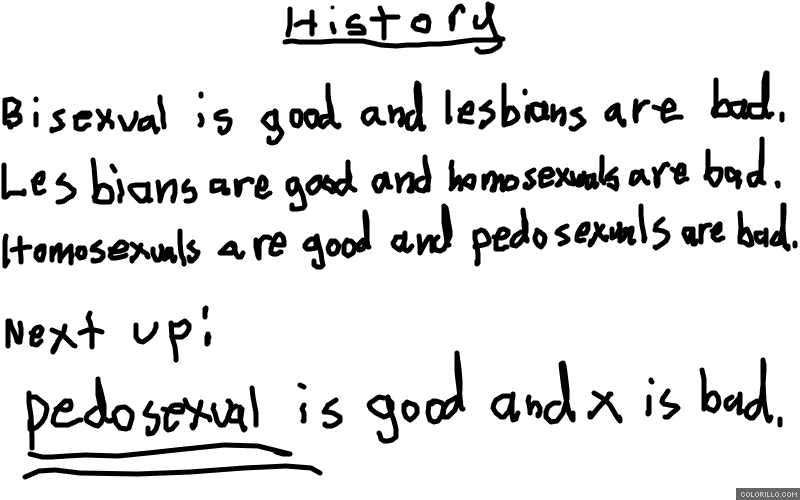 History
Bisexual is good and lesbians are bad.
Lesbians are good and homosexuals are bad.
Homosexuals are good and pedosexuals are bad.
Next up:
pedosexual is good and x is bad.
COLORILLO.COM